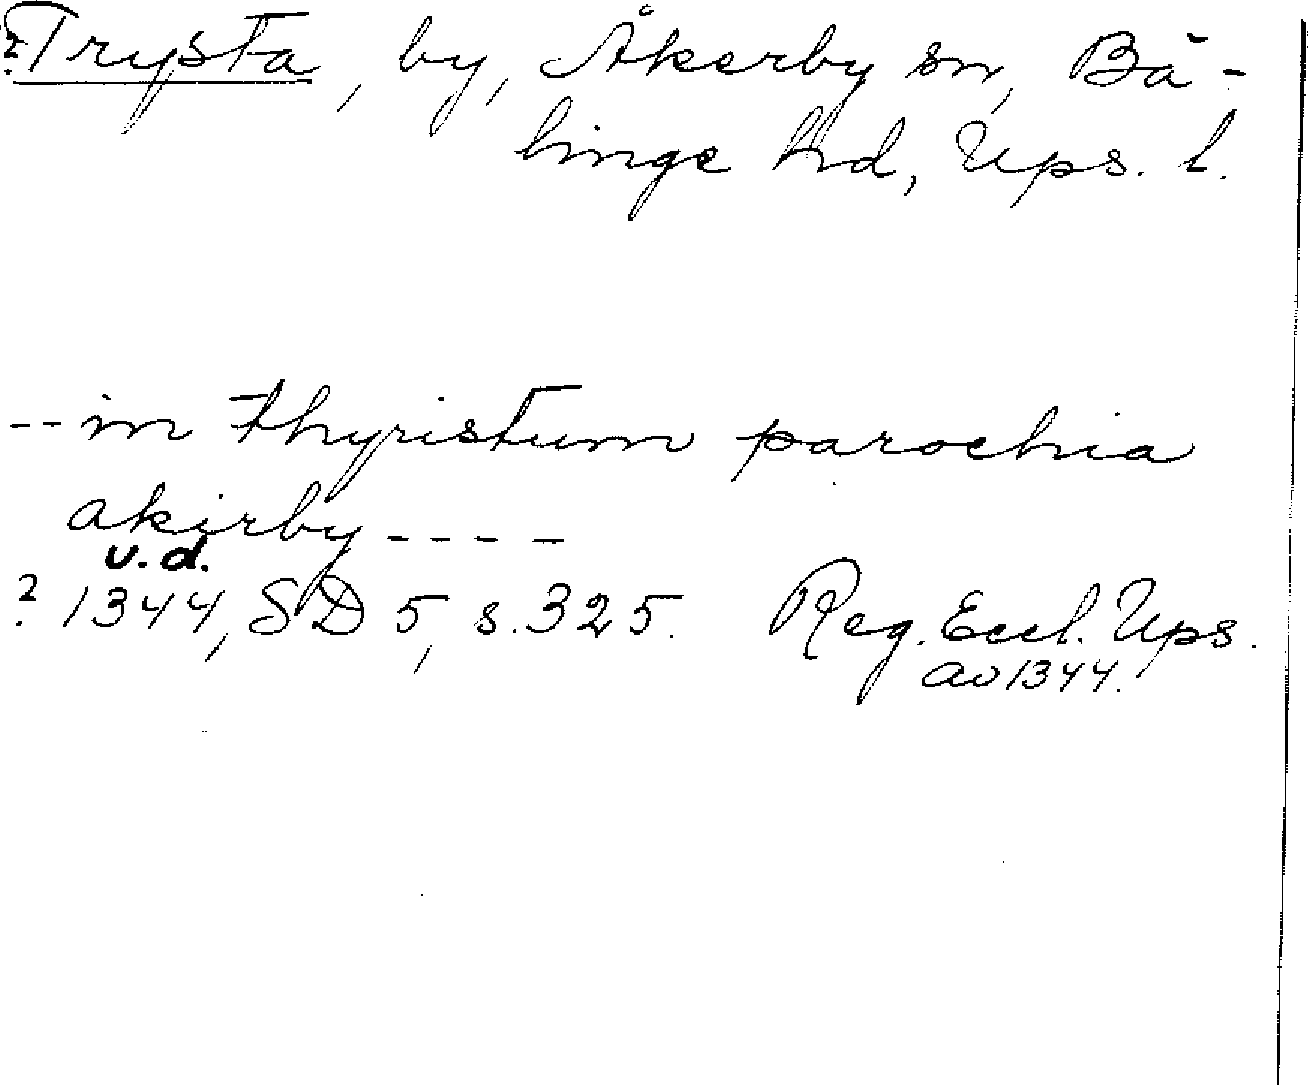 ? Trysta, by, Åkerby sn, Bä-
linge hd, Ups. l.
-- in thyristum parochia
akirby ----
u.d.
? 1344, SD 5, s. 325. Reg. Eccl. Ups.
av 1344.